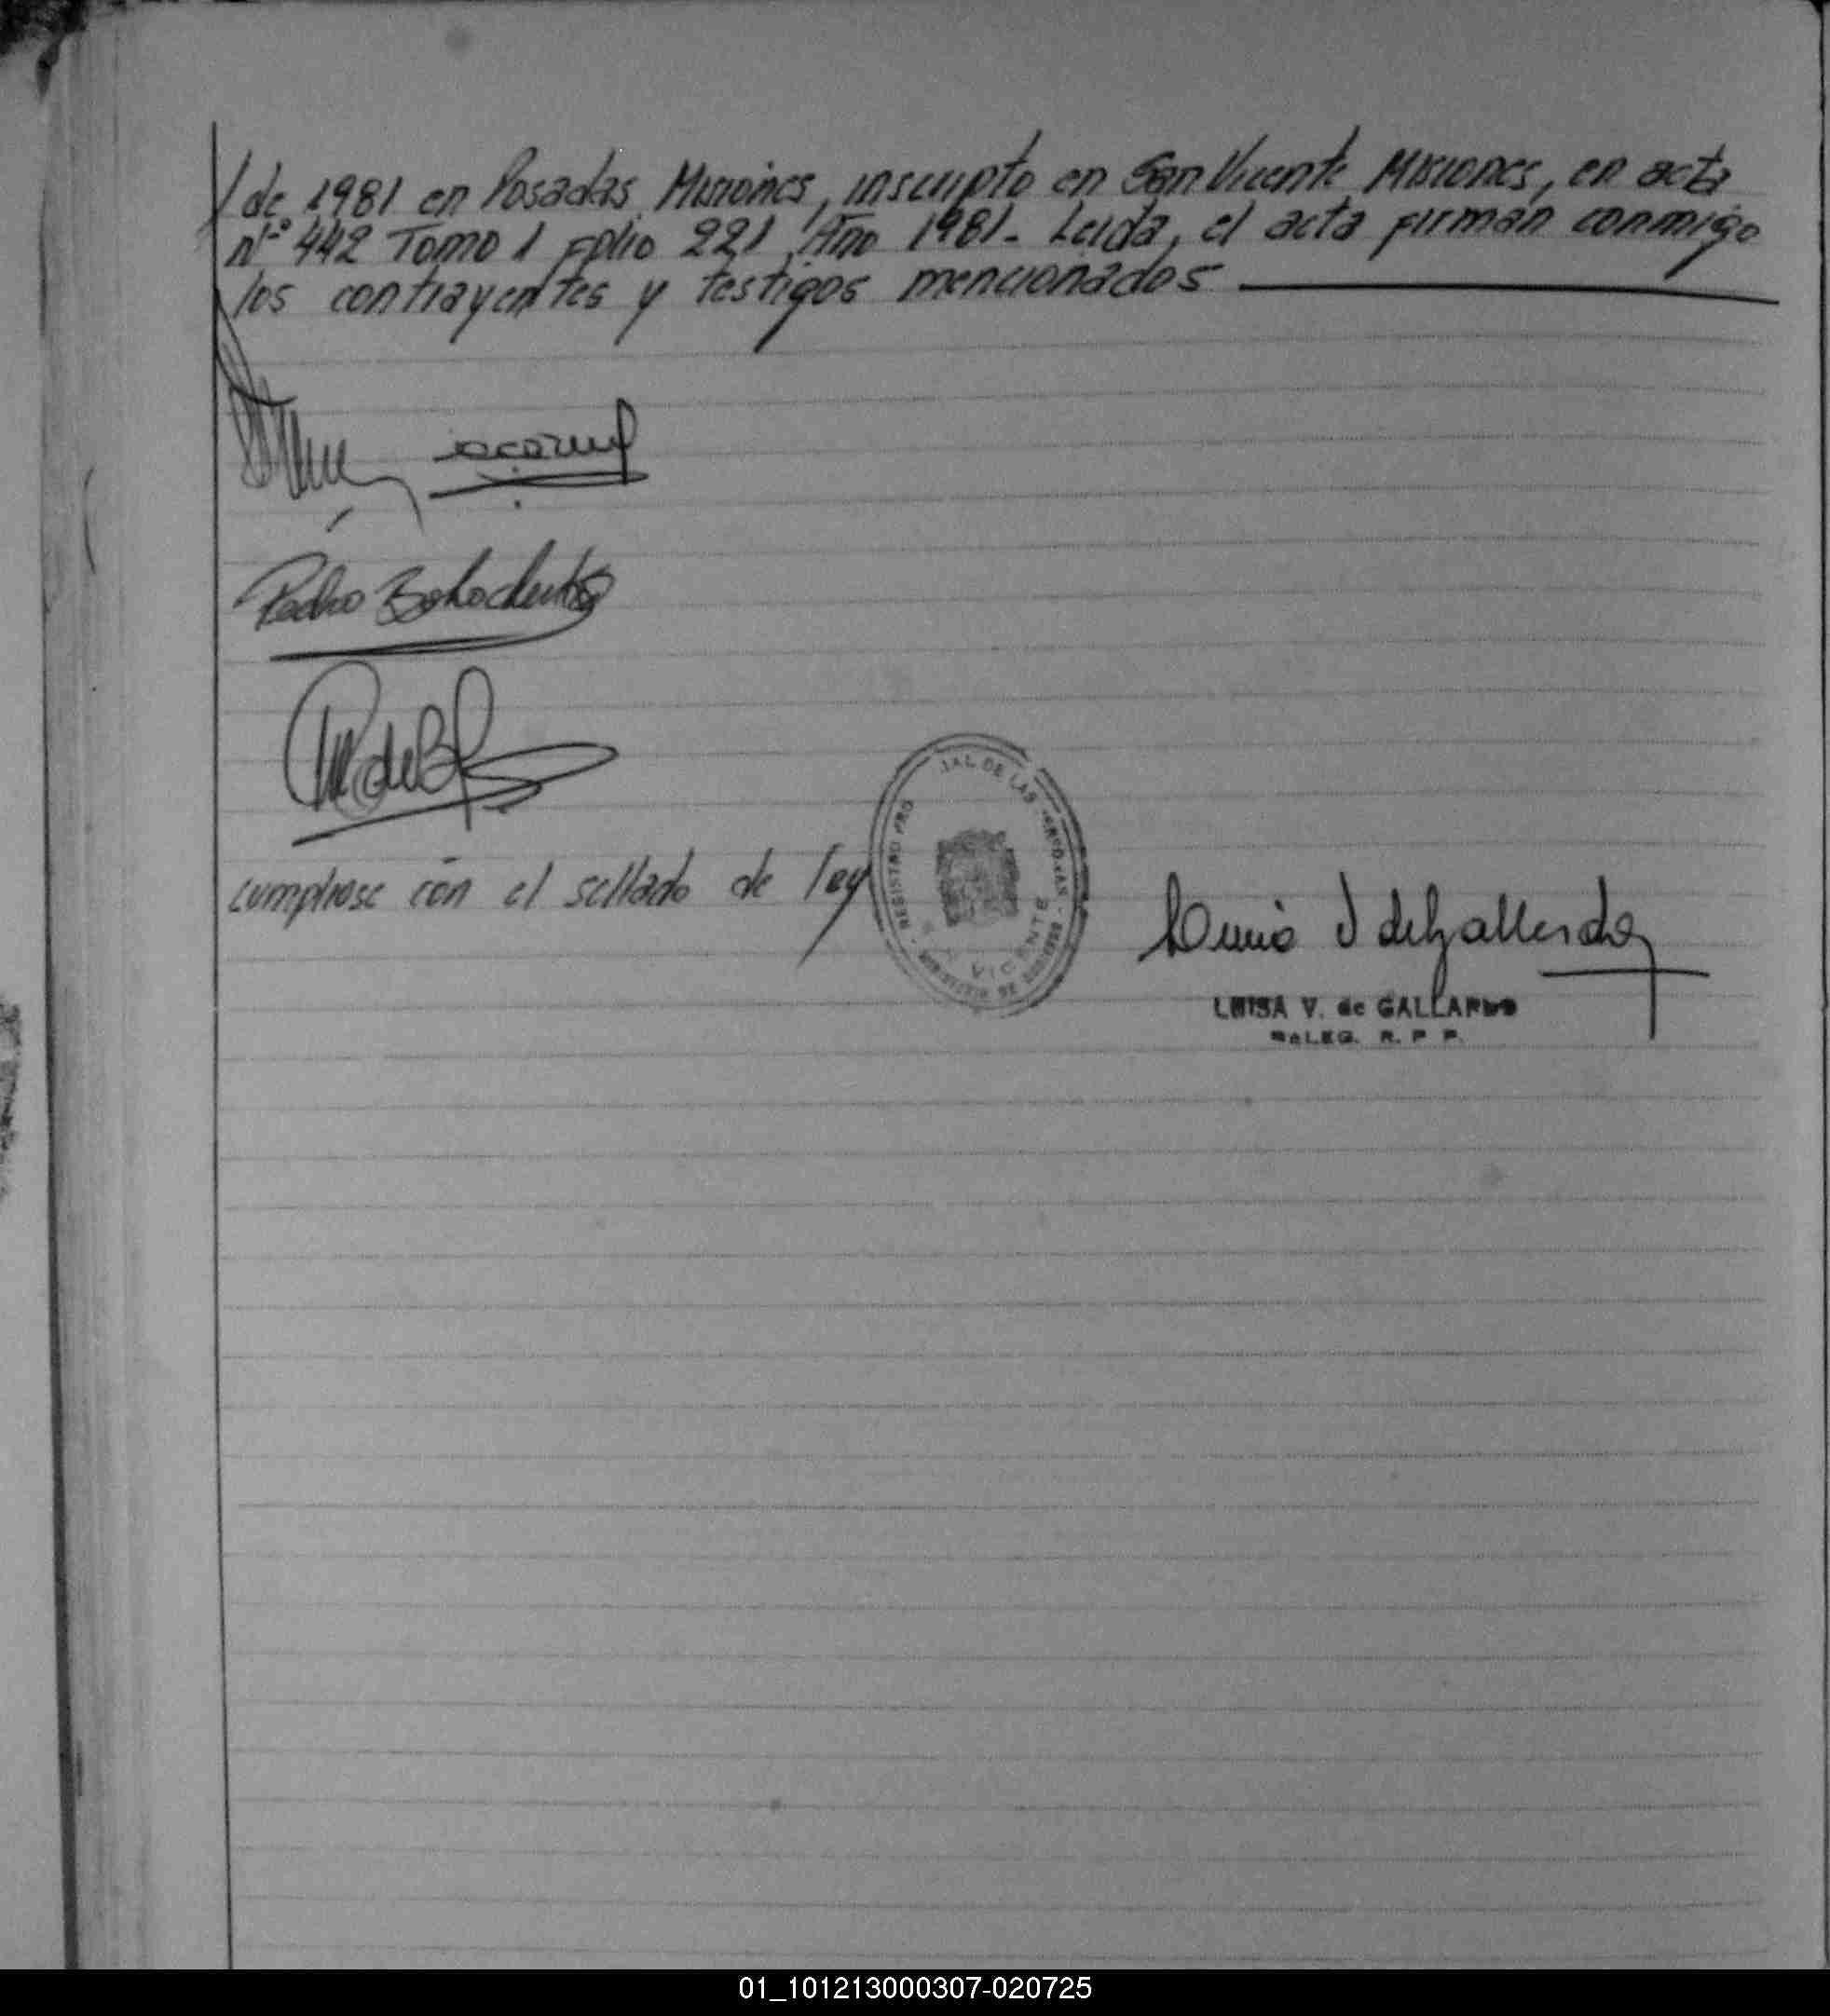 / de 1981 en Posadas Misiones, inscripto en San Vicente Misiones, en acta
nº 442 Tomo 1 folio 221 Año 1981.- Leida, el acta firman conmigo
los contrayentes y testigos mencionados
Pedro
cumplrase con el sellado de ley
REGISTRO PRO JAL DE LAS
VICENTE
de Gallardo
LUISA V. de GALLARDO
DELEG. R. P. P.
01_101213000307-020725